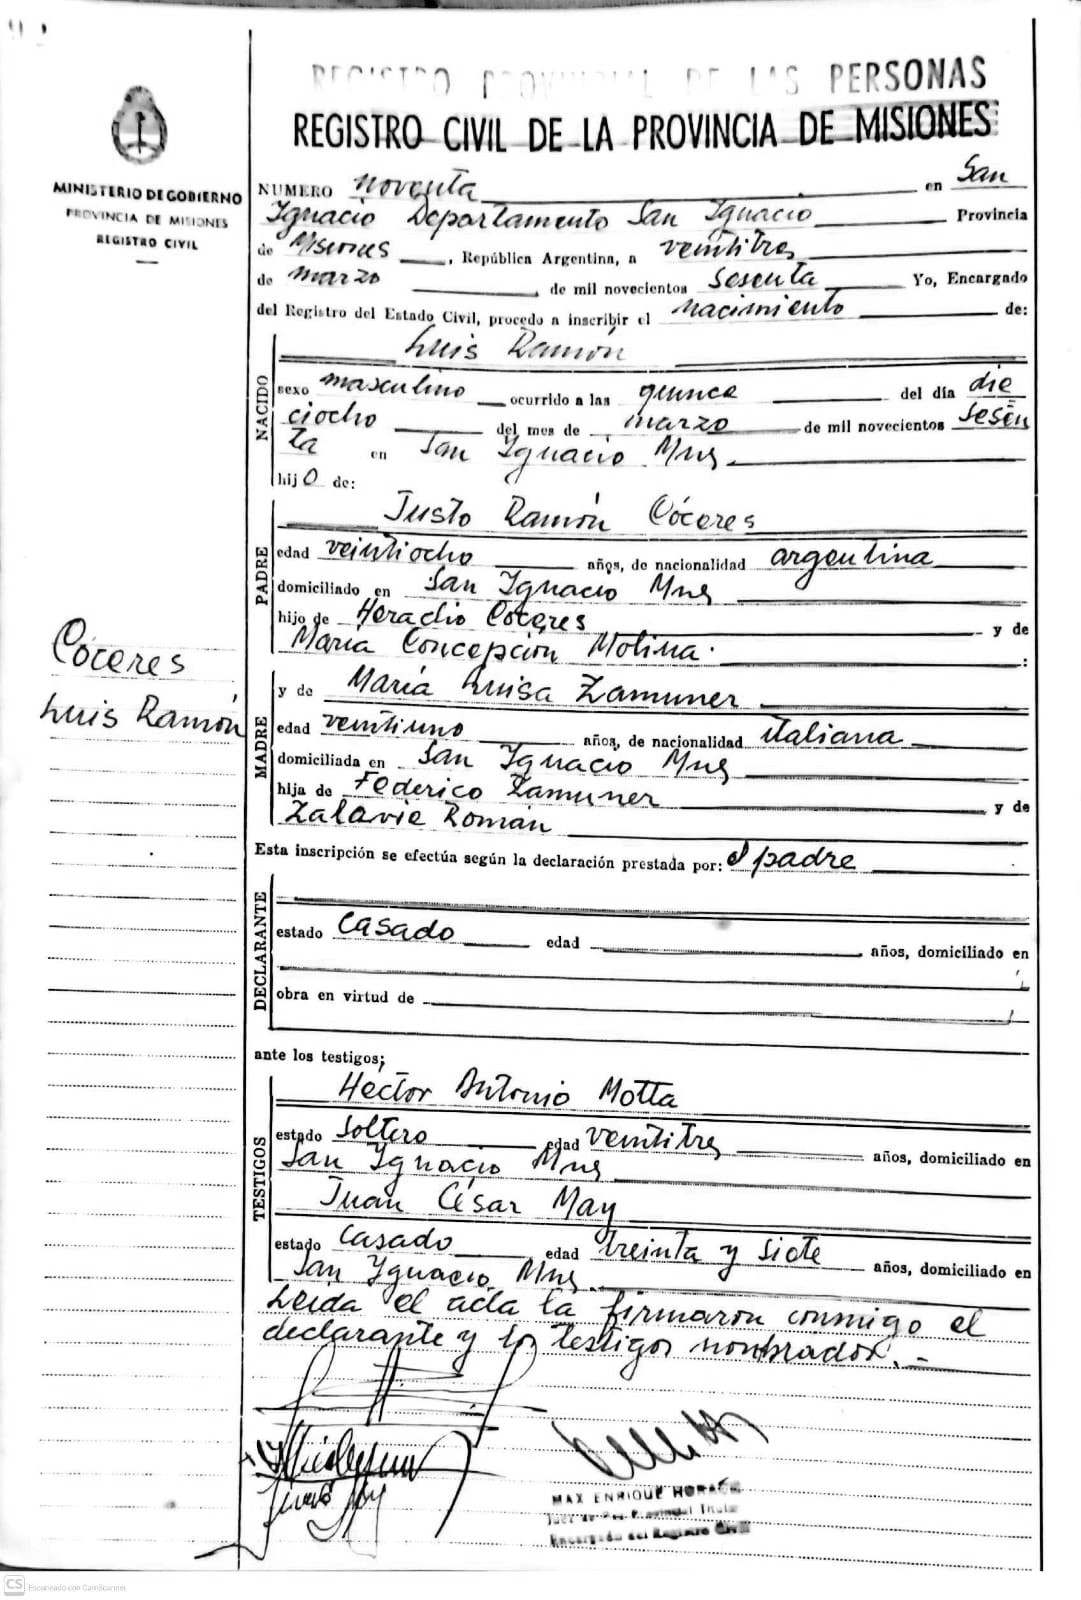 REGISTRO PROVINCIAL DE LAS PERSONAS
REGISTRO CIVIL DE LA PROVINCIA DE MISIONES
MINISTERIO DE GOBIERNO
PROVINCIA DE MISIONES
REGISTRO CIVIL
NUMERO noventa en San
Ignacio Departamento San Ignacio Provincia
de Misiones, República Argentina, a veintitres
de marzo de mil novecientos sesenta Yo, Encargado
del Registro del Estado Civil, procedo a inscribir el nacimiento de:
Luis Ramón
NACIDO
sexo masculino ocurrido a las quince del día die
ciocho del mes de marzo de mil novecientos sesen
ta en San Ignacio Mns.
hijo de:
Justo Ramón Cóceres
PADRE
edad veintiocho años, de nacionalidad argentina
domiciliado en San Ignacio Mns
hijo de Heraclio Cóceres y de
María Concepción Molina. :
Cóceres
Luis Ramón
y de María Luisa Zamuner
MADRE
edad veintiuno años, de nacionalidad italiana
domiciliada en San Ignacio Mns
hija de Federico Zamuner y de
Zalavie Román
Esta inscripción se efectúa según la declaración prestada por: el padre
DECLARANTE
estado casado edad años, domiciliado en
obra en virtud de
ante los testigos;
Hector Antonio Motta
TESTIGOS
estado soltero edad veintitres años, domiciliado en
San Ignacio Mns
Juan César May
estado casado edad treinta y siete años, domiciliado en
San Ignacio Mns.
Leida el acta la firmaron conmigo el
declarante y los testigos nombrados.-
MAX ENRIQUE HORACE
Juez de Paz Provincial Titular
Encargado del Registro Civil
CS Escaneado con CamScanner